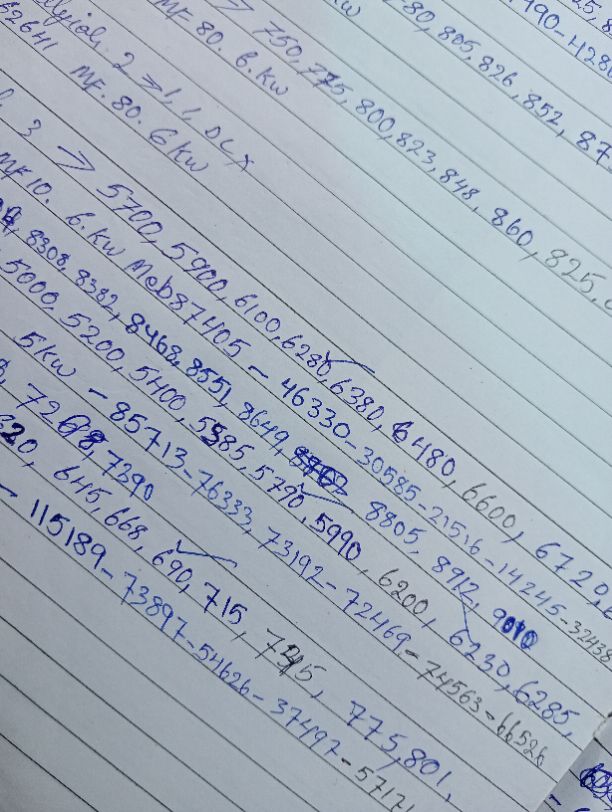 490-428
-80, 805, 826, 852, 87
> 750, 775, 800, 823, 848, 860, 825,
MF. 80. 6. KW
2 > 1, 1, DLX
62641 MF. 80. 6 KW
3 > 5700, 5900, 6100, 6280, 6380, 6480, 6600, 6720,
MF 10. 6. KW Mob 87405 - 46330-30585-21516-14245-32438
8308, 8382, 8468, 8551, 8649, 8805, 8912, 9010
5000, 5200, 5400, 5585, 5790, 5990, 6200, 6230, 6285,
5KW - 85713-76333, 73192-72469-74563-66526
7268, 7390
620, 645, 668, 690, 715, 745, 775, 801,
- 115189-73897-54626-37497-57121